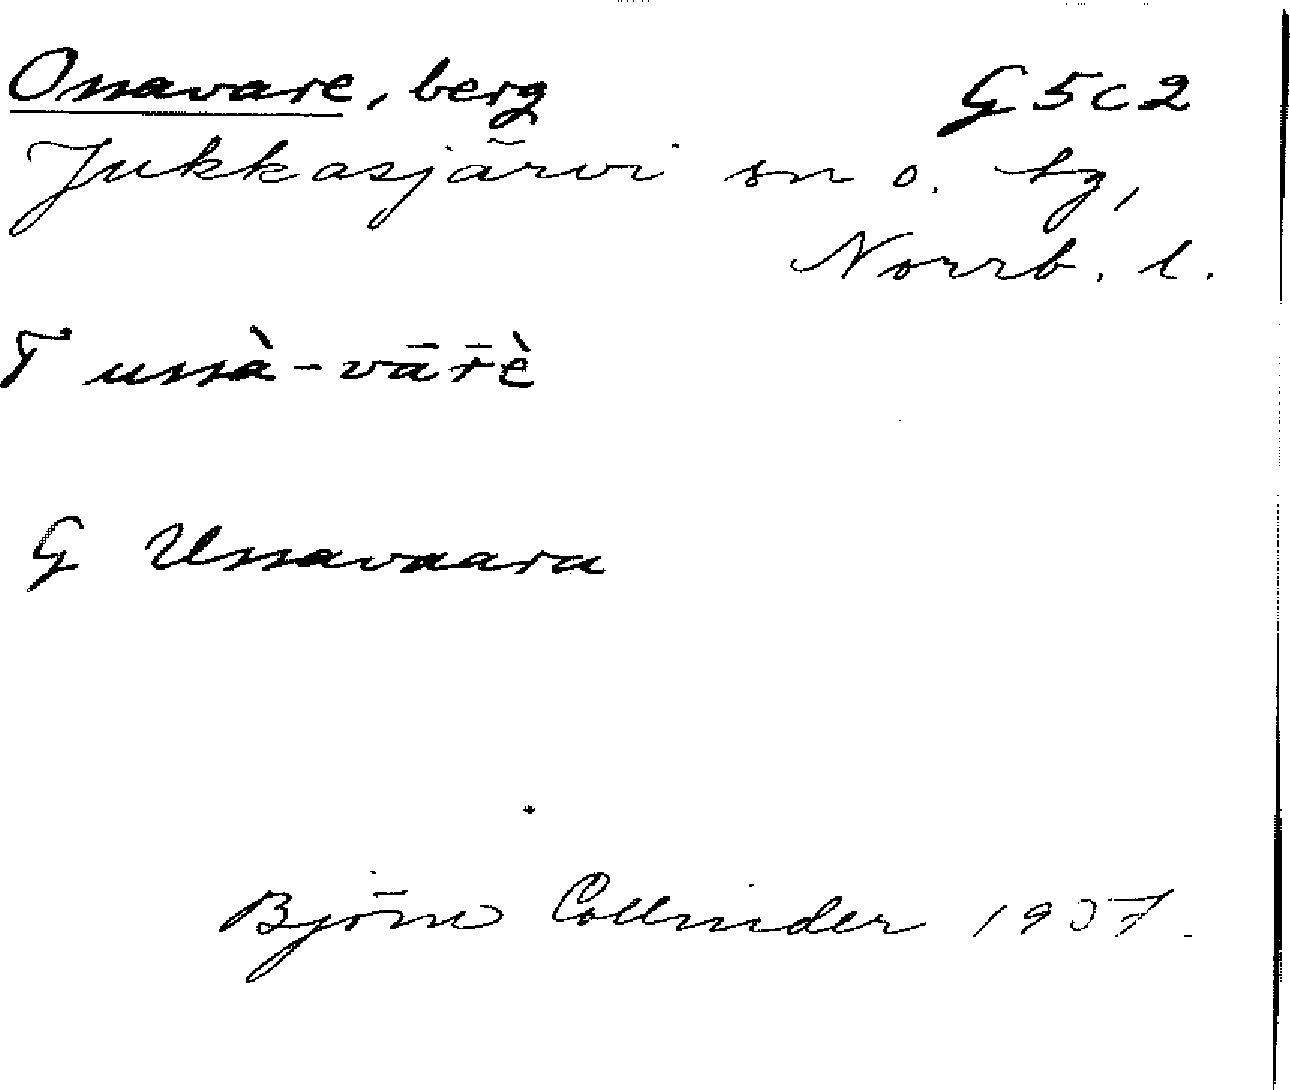 Ossavare, berg G 5 c 2
Jukkasjärvi sn o. tg,
Norrb. l.
T ussà-vār̄è
G Ussavaara
Björn Collinder 1937.